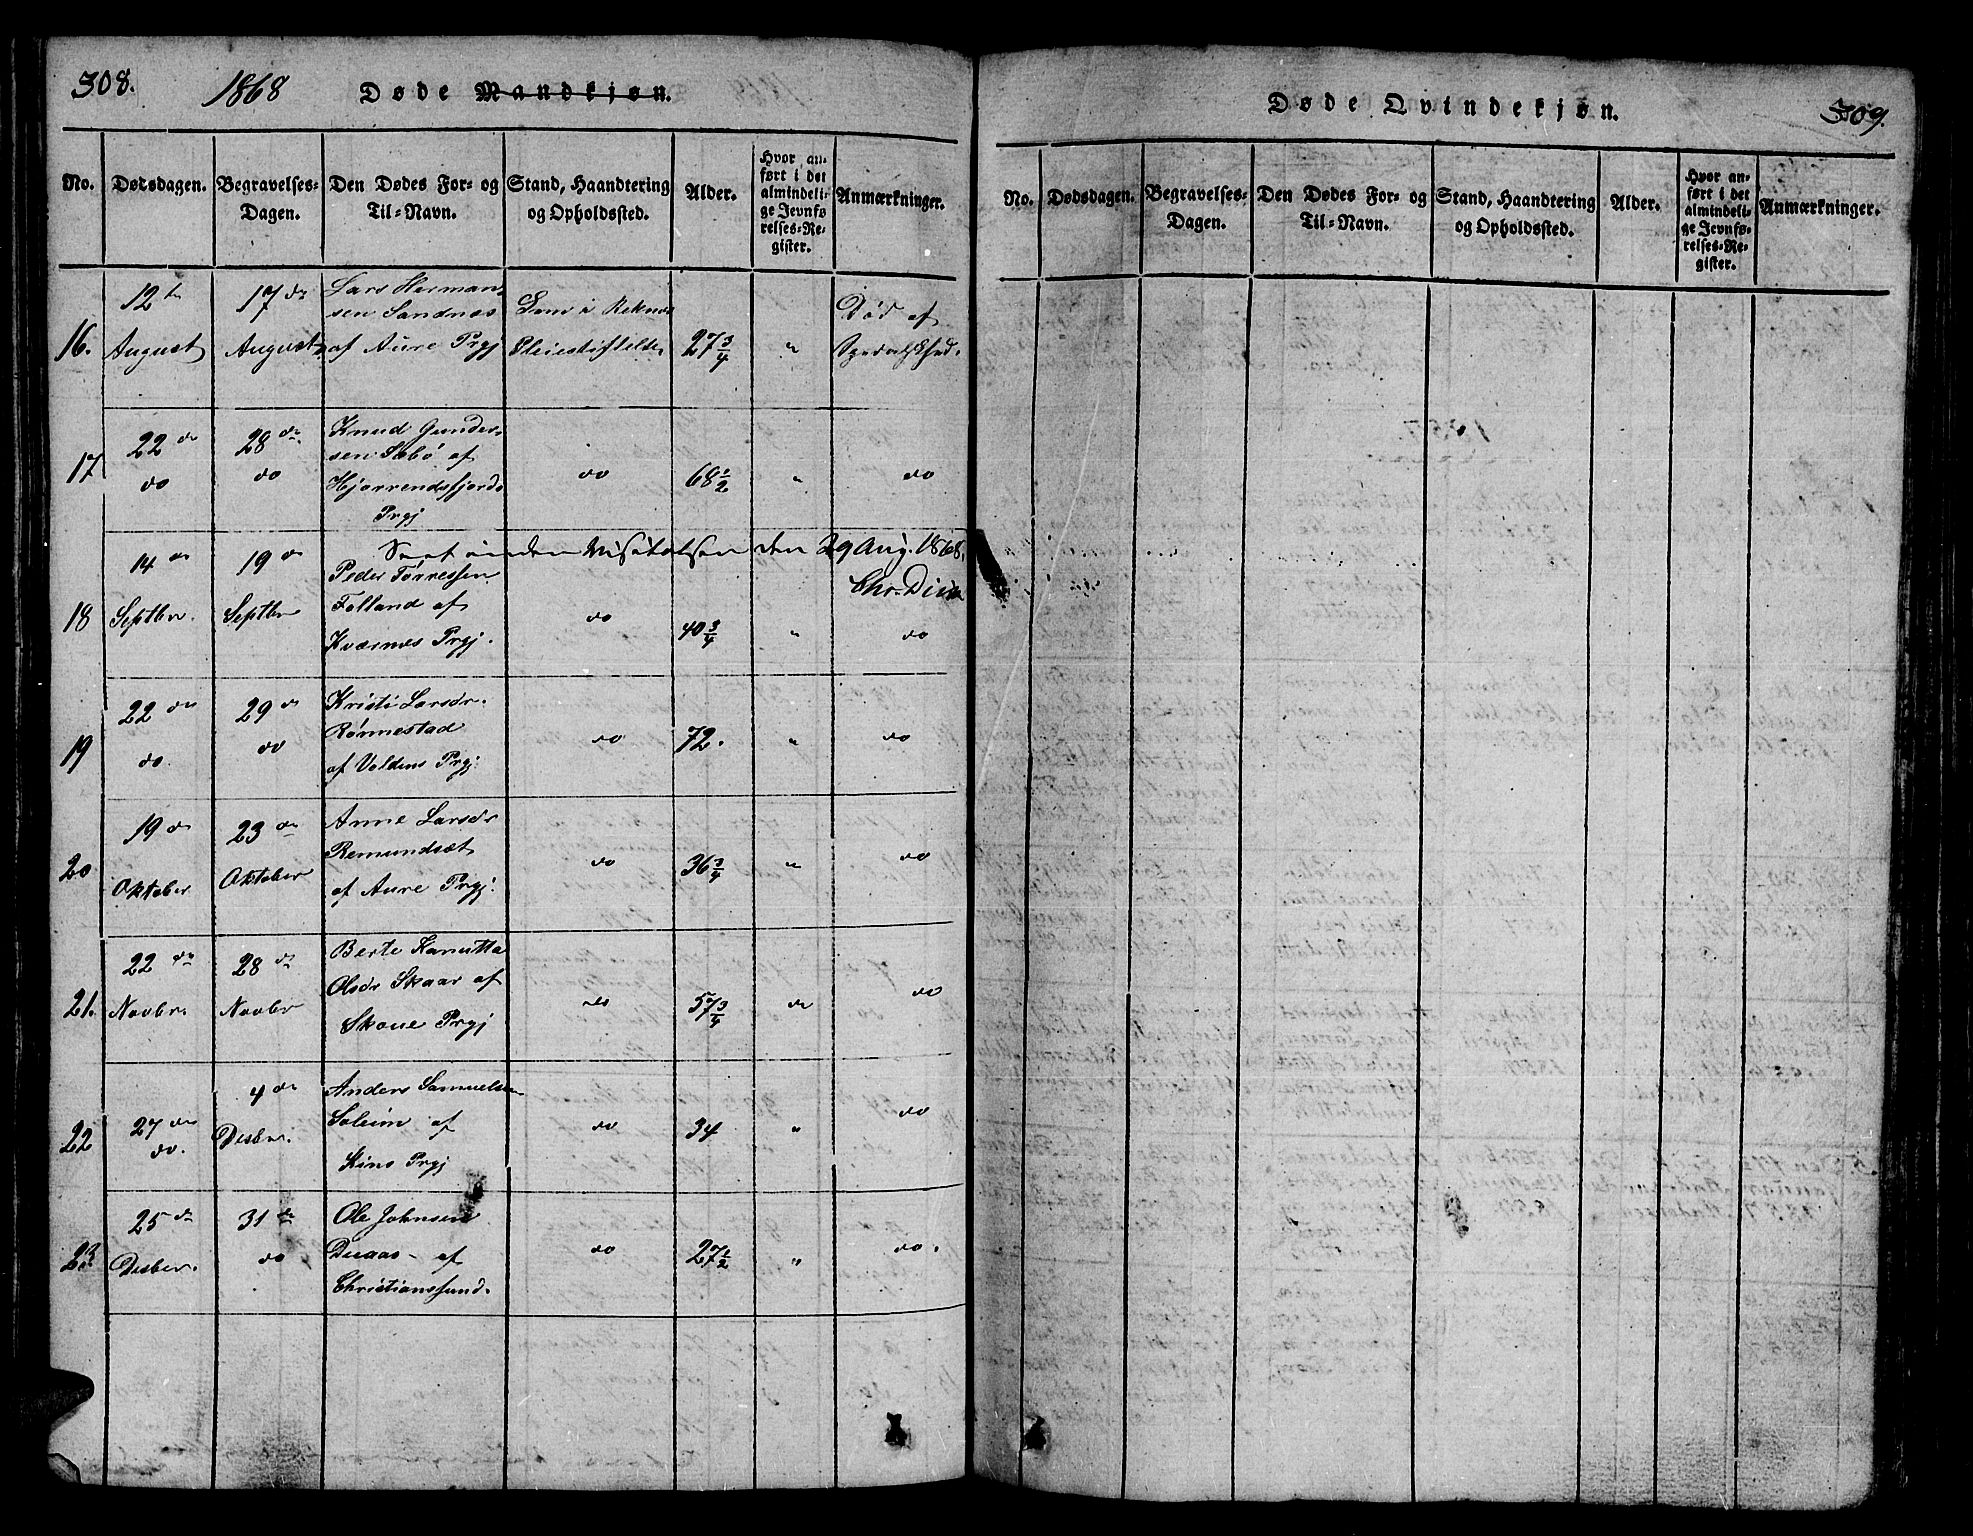 308.
1868
Døde Mandkjøn.
No.
Dødsdagen.
Begravelses-
Dagen.
Den Dødes For- og
Til-Navn.
Stand, Haandtering
og Opholdssted.
Alder.
Hvor an-
ført i det
almindeli-
ge Jevnfø
relses-Re-
gister.
Anmærkninger.
16.
12te
August
17de
August
Lars Herman-
sen Sandnes
af Aure Prgj
Lem i Reknes
Pleiestiftelse
27 3/4
"
Død af
Spedalskhed.
17
22de
do
28de
do
Knud Gunder-
sen Sæbø af
Hjørrendsfjords
Prgj
do
68 1/2
"
do
Seet under Visitatsen den 29 Aug. 1868.
Chr.
18
14de
Septbr.
19de
Septbr
Peder Tørressen
Folland af
Kværnes Prgj.
do
40 3/4
"
do
19
22de
do.
29de
do
Kristi Larsdr.
Rønnestad
af Voldens Prgj.
do
72.
"
do
20
19de
Oktober
23de
Oktober
Anne Larsdr
Remundsæt
af Aure Prgj.
do
36 3/4
"
do
21.
22de
Novbr.
28de
Novbr
Berte Kanutta
Olsdr Skaar af
Skoue Prgj
do
57 3/4
"
do
22
27de
do.
4de
Desbr.
Anders Samuelsen
Soleim af
Kins Prgj
do
34
"
do
23
25de
Desber.
31de
do
Ole Johnsen
Duaas - af
Christianssund.
do
27 1/2
"
do.
Døde Qvindekjøn.
309.
No.
Dødsdagen.
Begravelses-
Dagen.
Den Dødes For- og
Til-Navn.
Stand, Haandtering
og Opholdssted.
Alder.
Hvor an-
ført i det
almindeli-
ge Jevnfø-
relses-Re-
gister.
Anmærkninger.